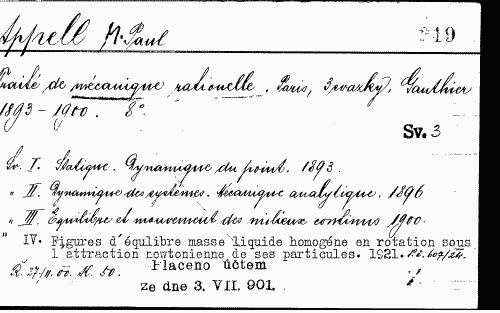 Appell M. Paul 219
Traité de mécanique rationelle. Paris, 3 svazky, Gauthier
1893-1900. 8°.
Sv. 3
Sv. I. Statique. Dynamique du point. 1893.
" II. Dynamique des systèmes. Mécanique analytique. 1896
" III. Equilibre et mouvement des milieux continus 1900.
" IV. Figures d´équlibre masse liquide homogéne en rotation sous
l´attraction newtonienne de ses particules. 1921.
Ř. 27/II. 00. K. 50. Placeno účtem
ze dne 3. VII. 901.